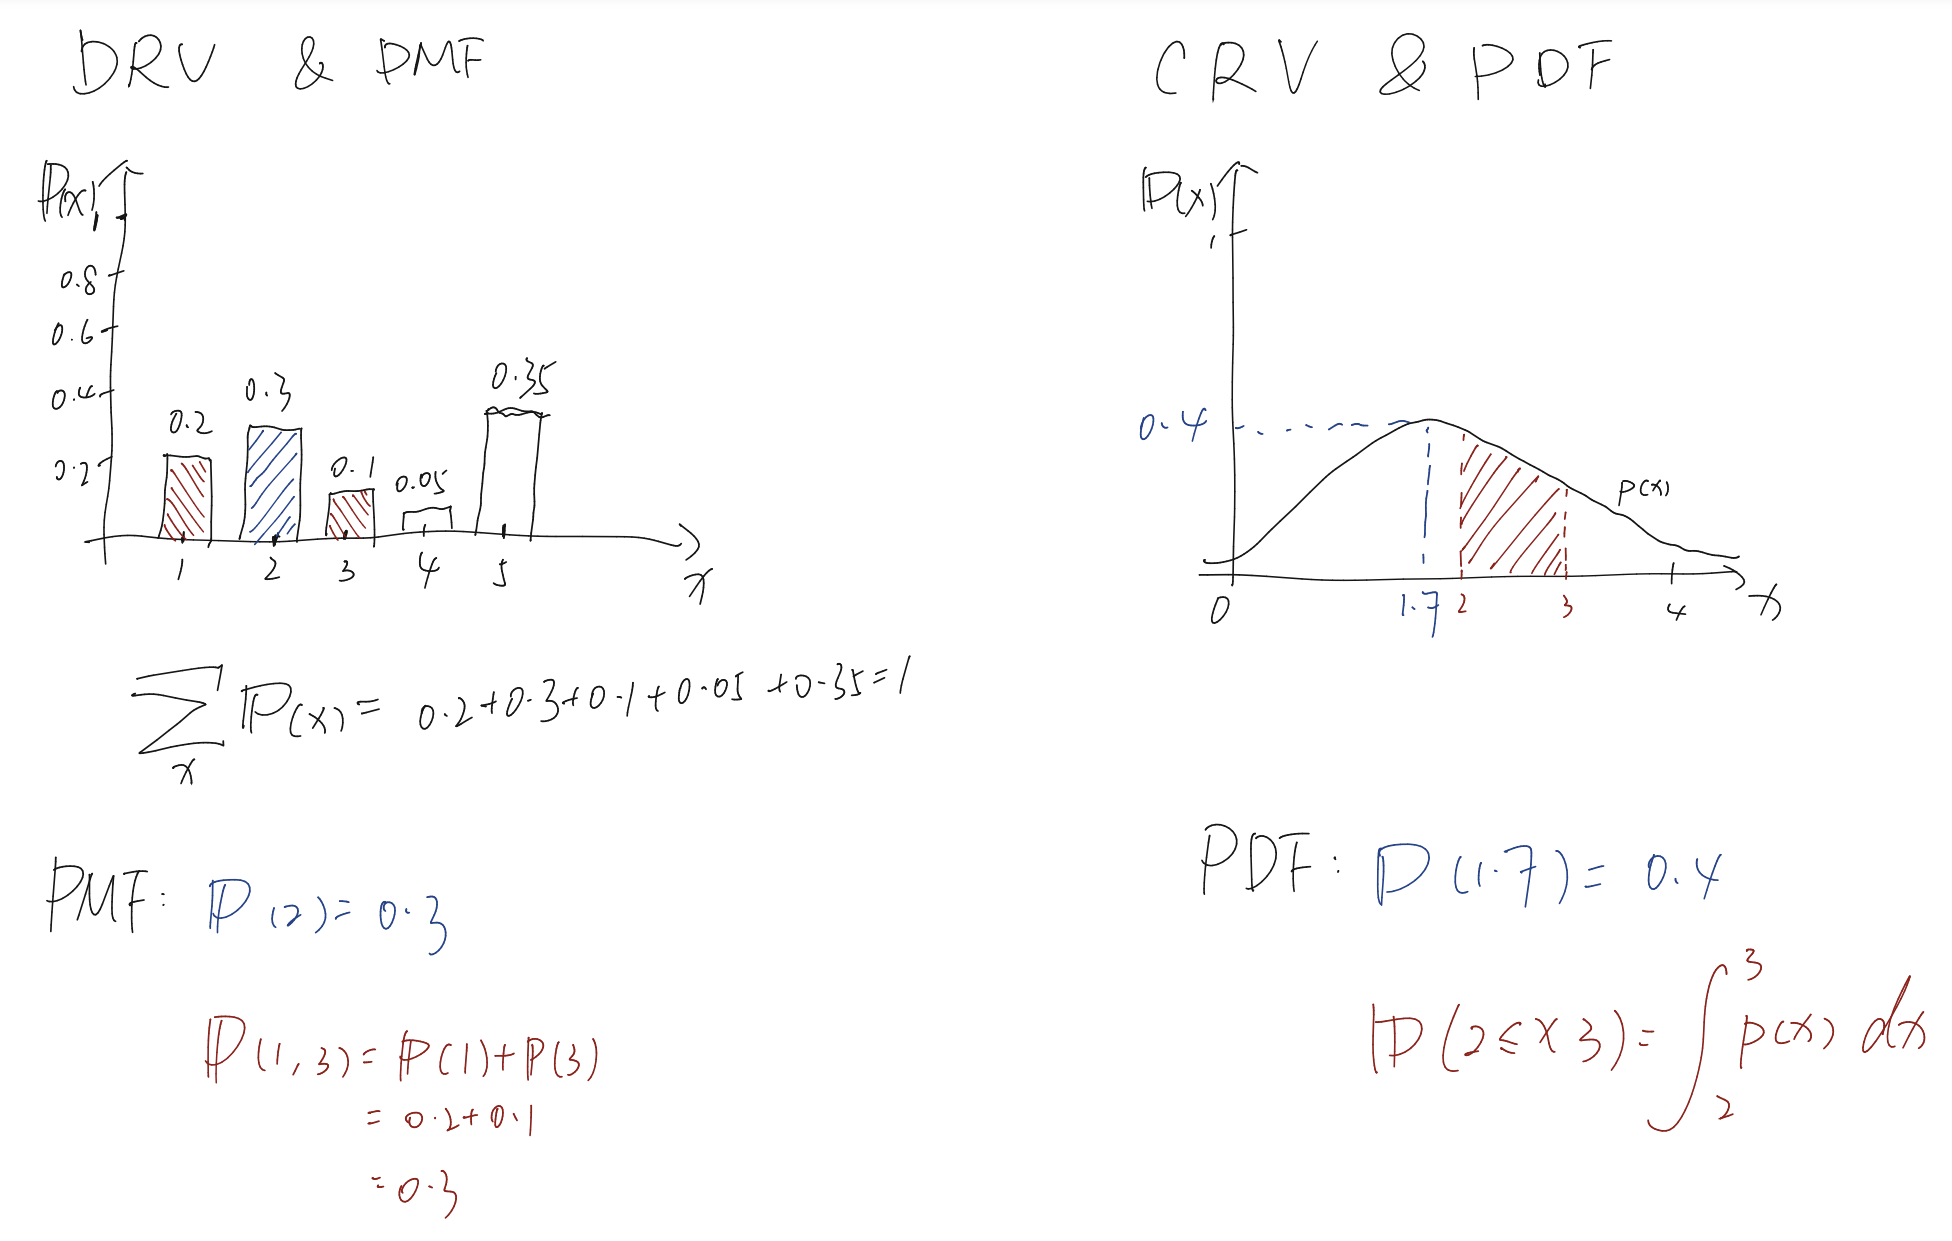 DRV & PMF
P(x)
1
0.8
0.6
0.4
0.2
0.2
0.3
0.1
0.05
0.35
1 2 3 4 5
x
∑ P(x) = 0.2+0.3+0.1+0.05+0.35=1
x
PMF: P(2)=0.3
P(1,3)=P(1)+P(3)
= 0.2+0.1
=0.3
CRV & PDF
P(x)
1
0.4
p(x)
0 1.7 2 3 4 x
PDF: P(1.7)= 0.4
P(2≤x 3)= ∫₂³ p(x) dx